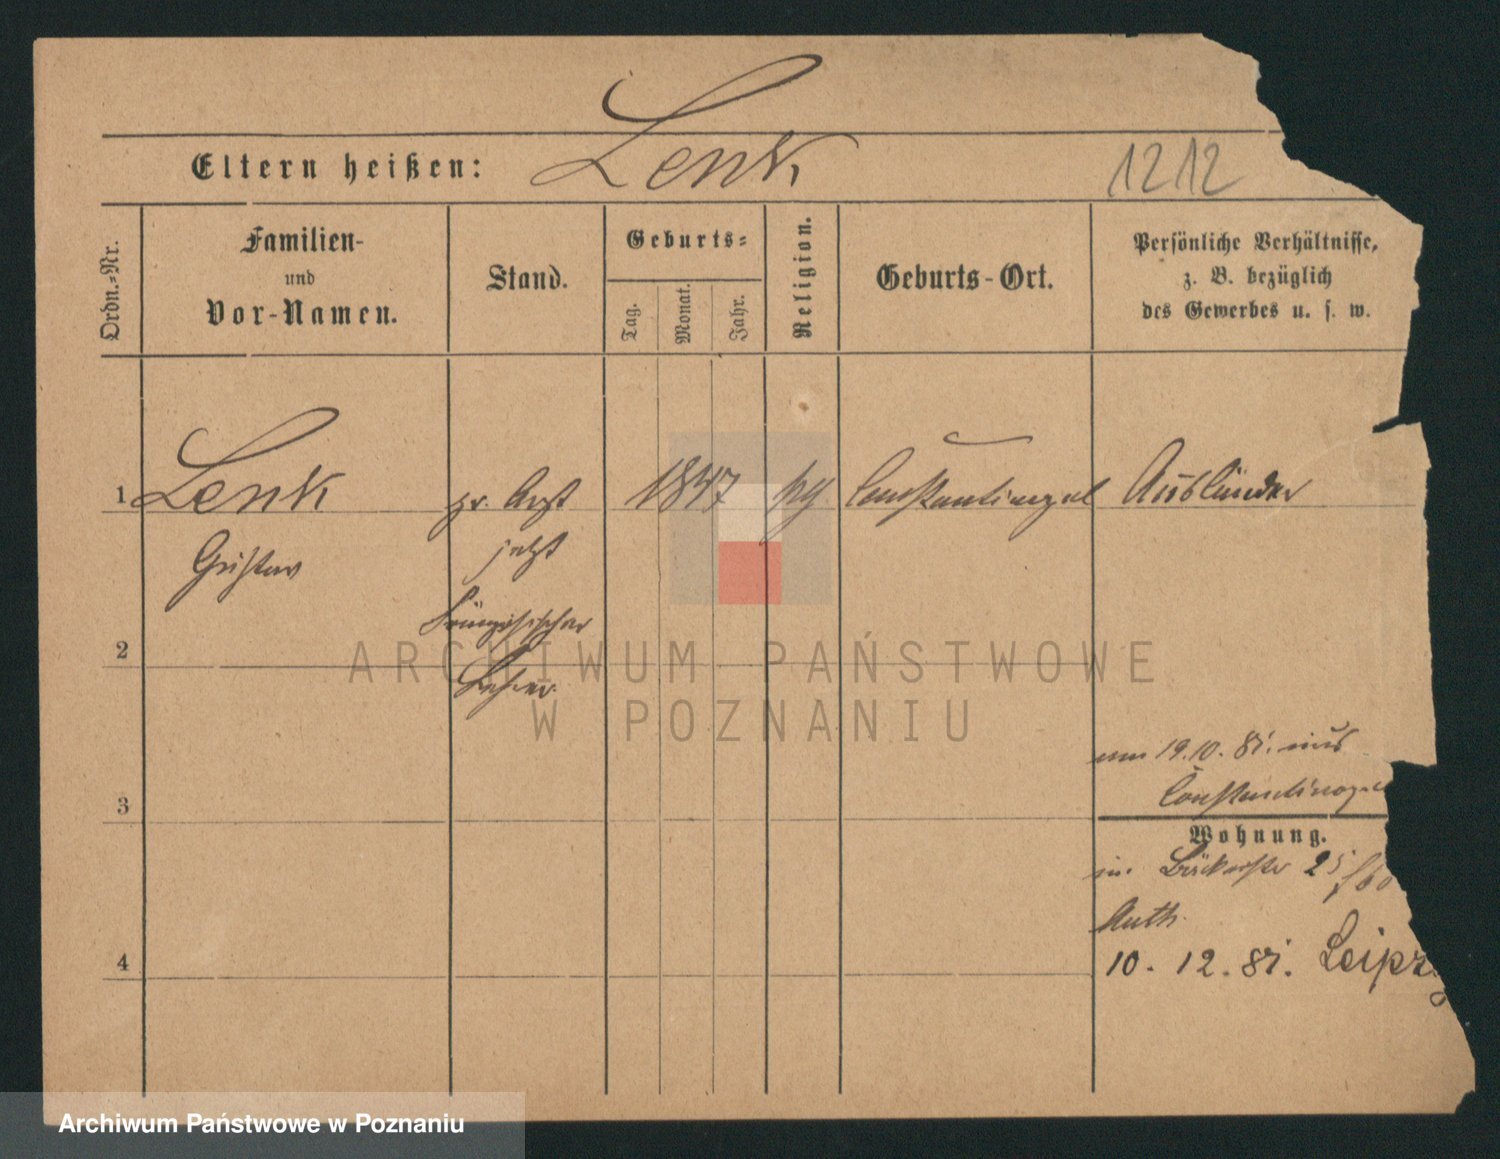 Lenk
Eltern heißen:
1212
Ordn.-Nr.
Familien-
und
Vor-Namen.
Stand.
Geburts-
Tag.
Monat.
Jahr.
Religion.
Geburts-Ort.
Persönliche Verhältnisse,
z. B. bezüglich
des Gewerbes u. s. w.
1
Lenk
Gustav
pr. Arzt
jetzt
Französischer
Lehrer
1847
Constantinopel
Ausländer
2
3
4
19.10.81. aus
Constantinop
Wohnung.
Bäckerstr 25
10. 12. 81. Leipz
ARCHIWUM PAŃSTWOWE
W POZNANIU
Archiwum Państwowe w Poznaniu